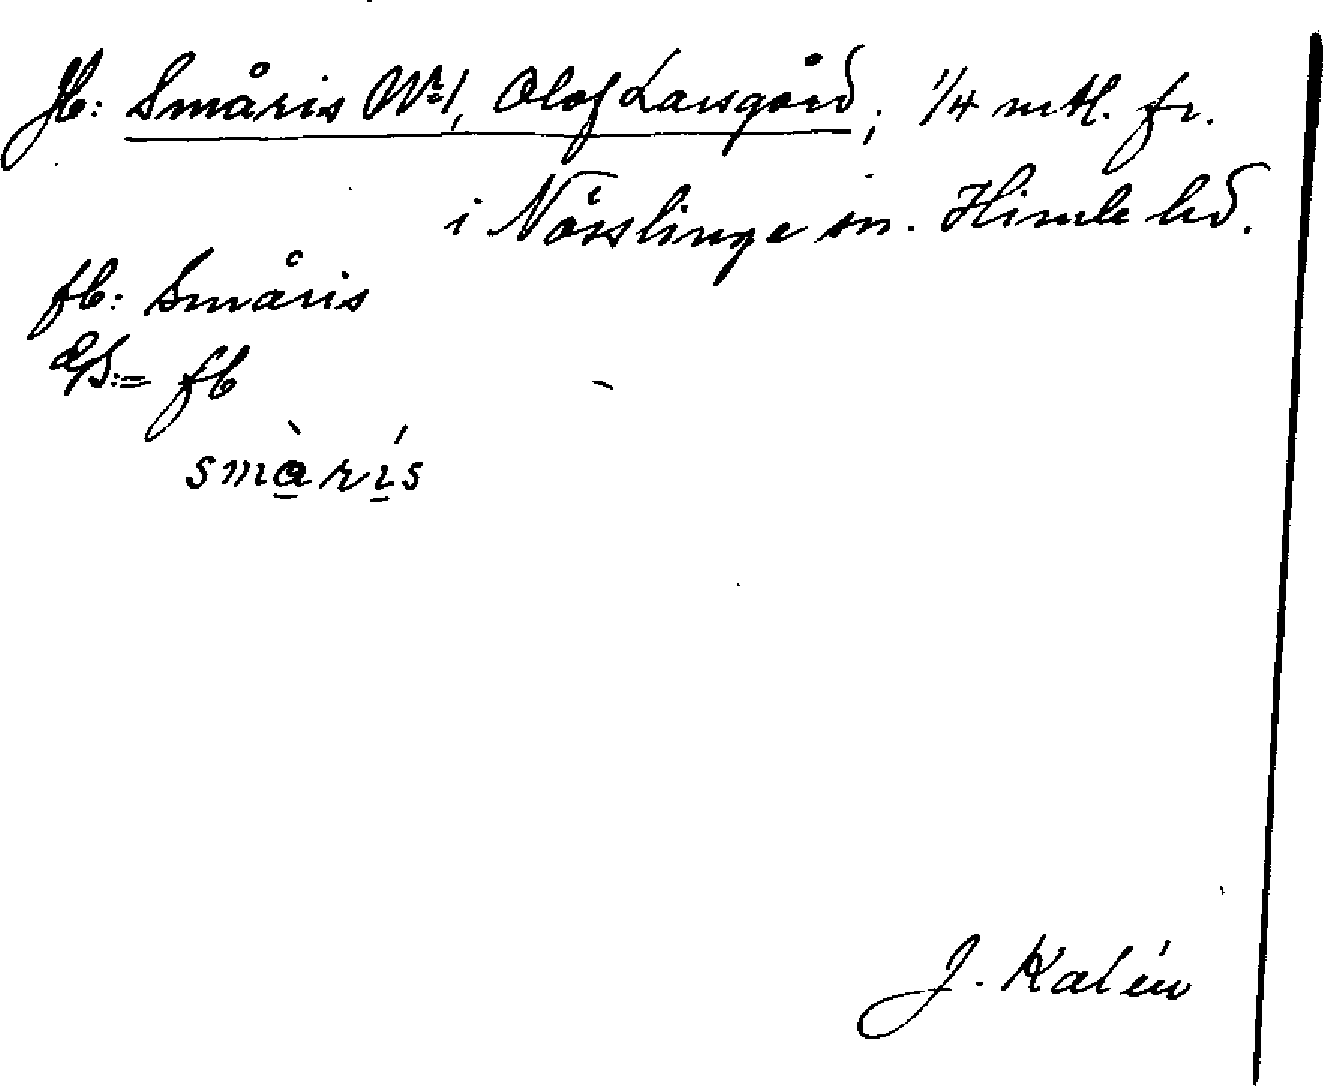 Jb: Småris No 1, Olof Larsgård; 1/4 mtl. fr.
i Nösslinge sn. Himle hd.
fb: Småris
= fb
smàrís
J. Kalén